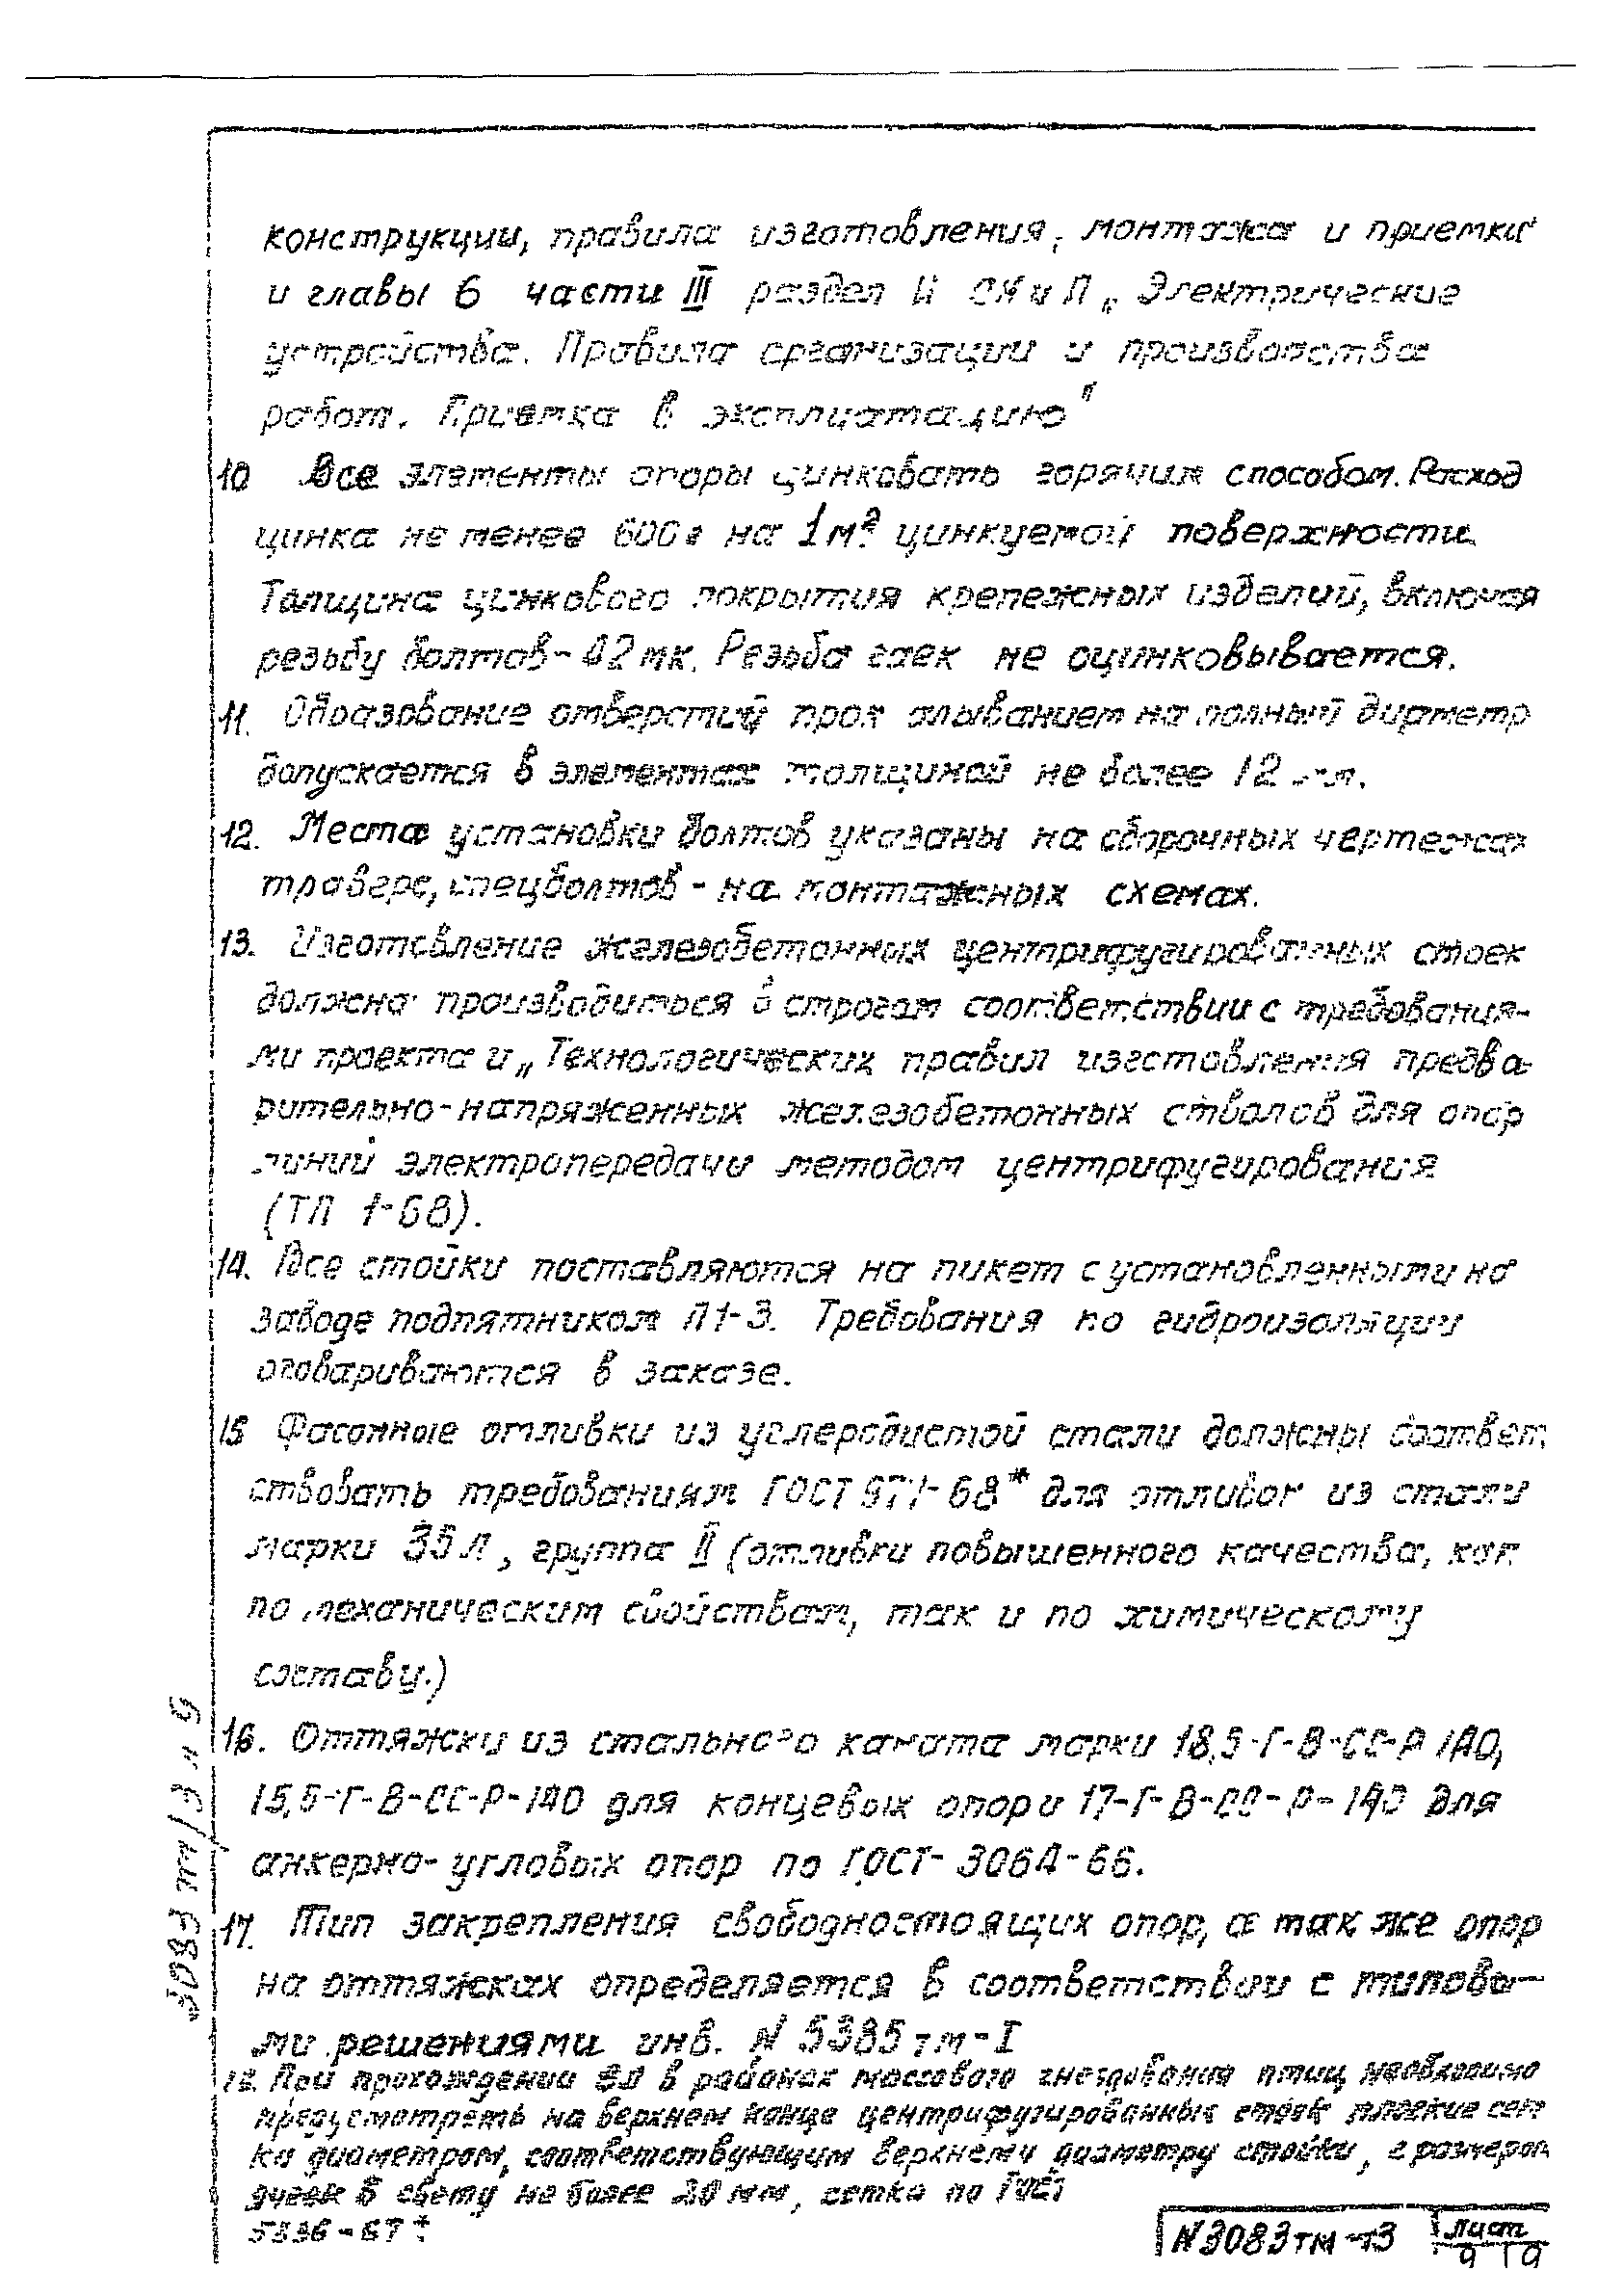 конструкции, правила изготовления, монтажа и приемки
и главы 6 части III раздел И СНиП „Электрические
устройства. Правила организации и производства
работ. Приемка в эксплуатацию"
10 Все элементы опоры цинковать горячим способом. Расход
цинка не менее 600г на 1м² цинкуемой поверхности.
Толщина цинкового покрытия крепежных изделий, включая
резьбу болтов - 42мк. Резьба гаек не оцинковывается.
11. Образование отверстий на полный диаметр
допускается в элементах толщиной не более 12 мм.
12. Места установки болтов указаны на сборочных чертежах
траверс, спецболтов - на монтажных схемах.
13. Изготовление железобетонных центрифугированных стоек
должна производиться в строгом соответствии с требования-
ми проекта и „Технологических правил изготовления предва-
рительно-напряженных железобетонных стволов для опор
линий электропередачи методом центрифугирования
(ТП 1-68).
14. Все стойки поставляются на пикет с установленными на
заводе подпятником П1-3. Требования по гидроизоляции
оговариваются в заказе.
15 Фасонные отливки из углеродистой стали должны соответ
ствовать требованиям ГОСТ 977-68* для отливок из стали
марки 35Л, группа II (отливки повышенного качества, как
по механическим свойствам, так и по химическому
составу.)
16. Оттяжки из стального каната марки 18,5-Г-В-СС-Р 140,
15,5-Г-В-СС-Р-140 для концевых опор и 17-Г-В-СС-Р-140 для
анкерно-угловых опор по ГОСТ-3064-66.
17. Тип закрепления свободностоящих опор, а так же опор
на оттяжках определяется в соответствии с типовы-
ми решениями инв. N 5385тм-I
18. При прохождении ВЛ в районах массового гнездования птиц необходимо
предусмотреть на верхнем конце центрифугированных стоек плоские сет
ки диаметром, соответствующим верхнему диаметру стойки, с размером
ячеек в свету не более 20 мм, сетка по ГОСТ
5336-67*.
3083тм/3 л 9
N3083тм-т3 Лист
9 19